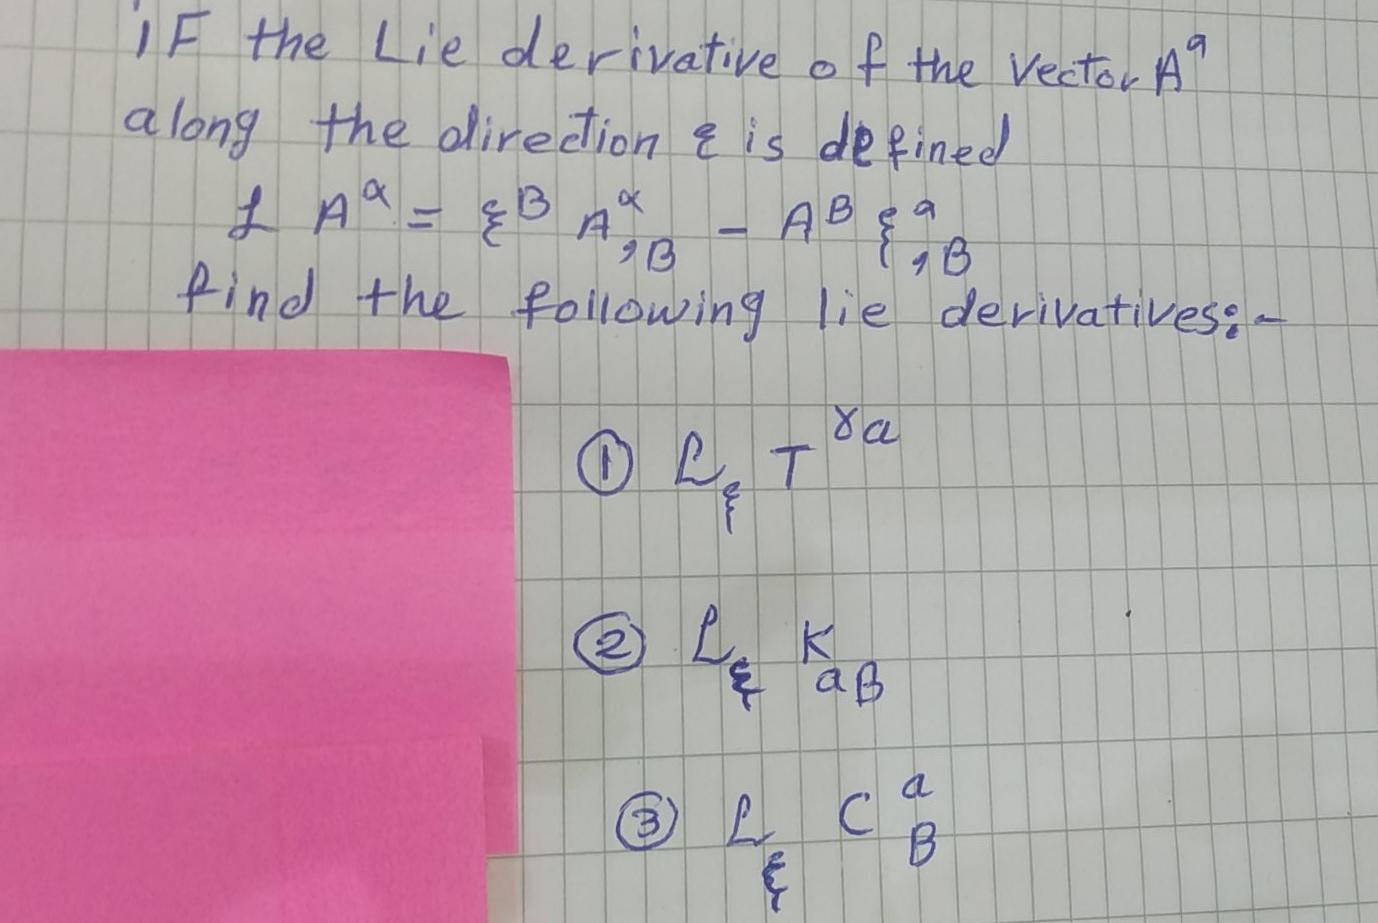 iF the Lie derivative of the vector Aᵃ
along the direction ξ is defined
£ A^α = ξ^B A^α_{,B} - A^B ξ^a_{,B}
find the following lie derivatives:-
① L_ξ T^{γa}
② L_ξ K_{aB}
③ L_ξ C^a_B